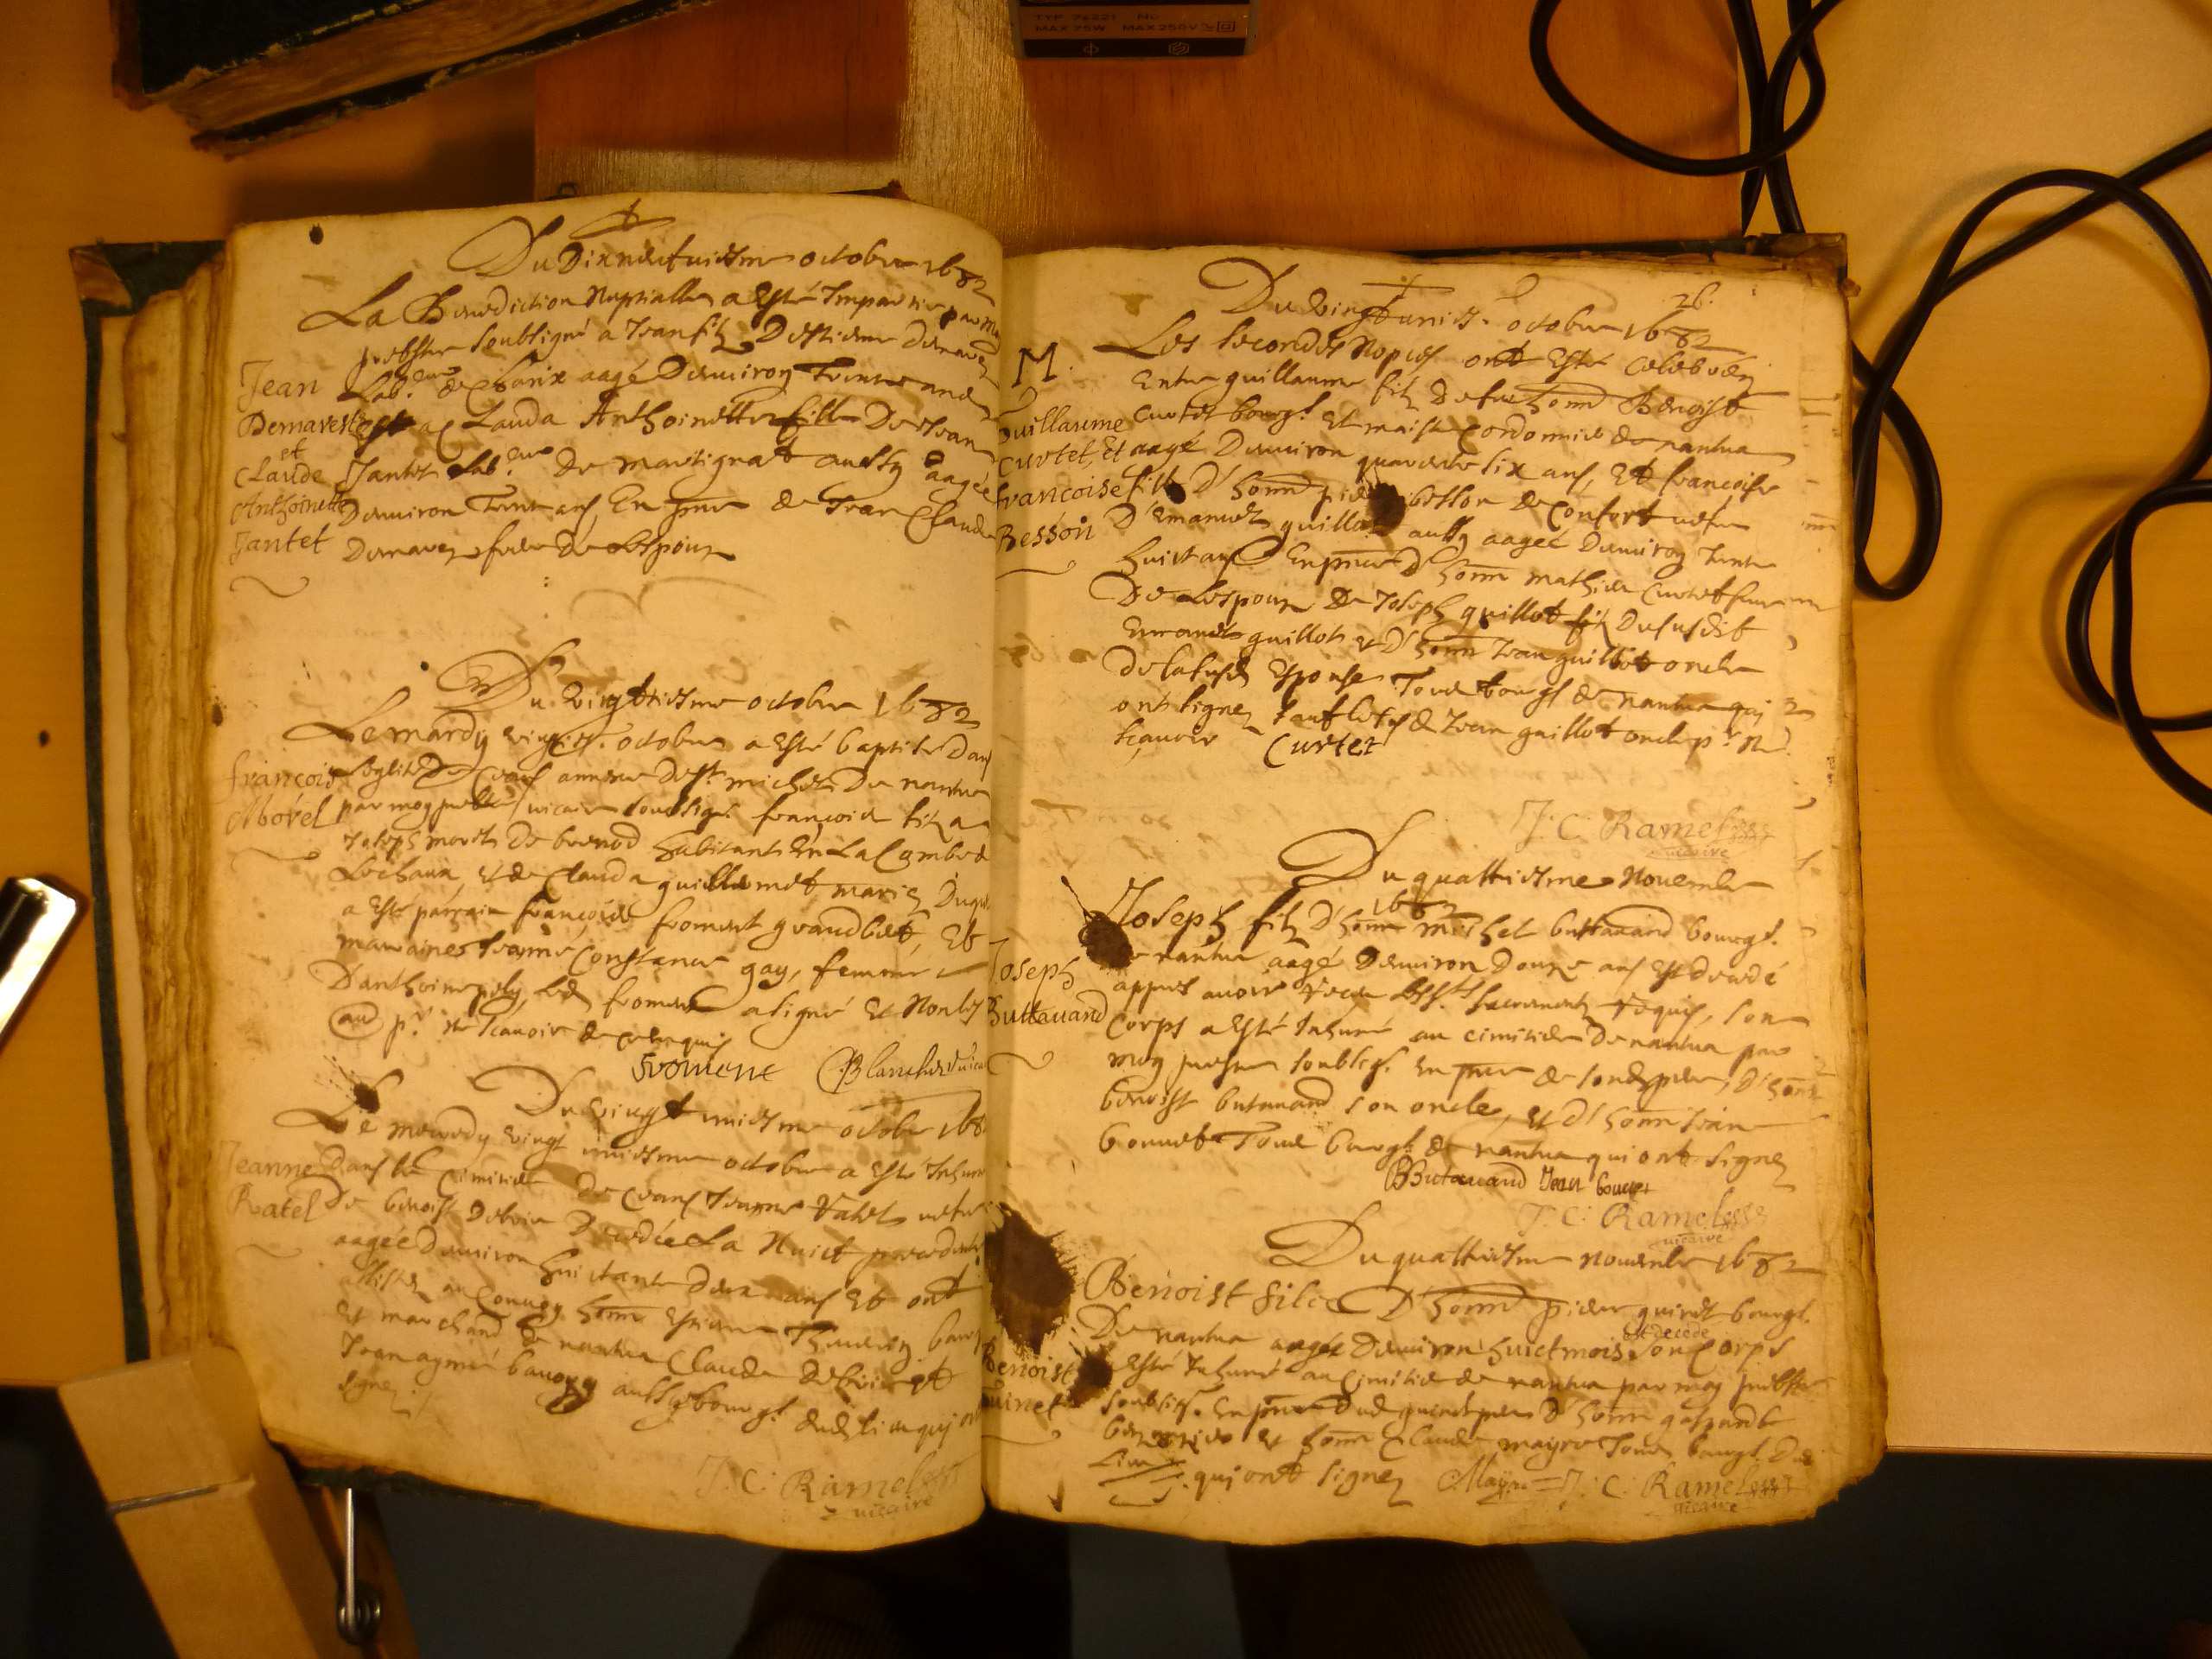 TYP 76221 No
MAX 75W MAX 250V
Du Dixneufuiesme octobre 1682
La Benediction Nuptialle a Esté Impartie par moy
prebstre soubsigné a Jean filz D'Estienne Demarez
Lab.eur de Charix aagé Denuiron Trente ans
et a Clauda Anthoinette fille De Jean
Jantet Lab.eur De martignat aussy aagée
Denuiron Trente ans, En pnce de Jean Claude
Demarez frere De Lespoux
Jean
Demarest
et
Claude
Anthoinette
Jantet
Du Vingtiesme octobre 1682
Le mardy vingtie. octobre a Esté baptisé Dans
Leglise De annexe De st. michel De nantua
par moy vicaire soubsigé. françois filz a
Joseph morel De brenod habitant En La Combe de
Lechaux, et de Clauda guillermet mariez Duquel
a Esté parrain françois froment grandbet, Et
marraine Jeanne Constance gay, femme
D'anthoine Led froment a signé Et Non les
p.r ne scauoir de ce requis
froment Blanchet vicaire
françois
Morel
Du vingt uniesme octobre 168
Le mecredy vingt uniesme octobre a Esté Inhumé
Dans Le Cimitiere De Jeanne Ratel uefue
De benoist Debrie Decedée La Nuict precedente
aagée Denuiron huictante Deux ans Et ont
assisté au Conuoy honn Estienne bourg
Et marchand De nantua Claude Et
Jean aymé aussy bourg.s dud lieu qui ont
signez
Jeanne
Ratel
J. C. Ramel
vicaire
26.
Du Vingt unies. octobre 1682
Les secondes Nopces ont Esté Celebrées
Entre guillaume filz De feu honn Benoist
Curtet bourg.s Et maistre Cordonnier De nantua
aagé Denuiron quarante six ans, Et françoise
fille D'honn pierre besson de Confort uefue
D'Emanuel guillot aussy aagée Denuiron Trente
huict ans En pnce D'honn mathieu Curtet frere
De Lespoux De Joseph guillot filz Du susdit
Emanuel guillot et D'honn Jean guillot oncle
De la susd Espouse Tous bourgs de nantua qui
ont signez sauf led de Jean guillot oncle p.r ne
scauoir Curtet
M.
Guillaume
Curtet, Et
françoise
Besson
J. C. Ramel
vicaire
Du quattriesme Nouembre
1682
Joseph filz D'honn michel buttauand bourgs.
De nantua aagé Denuiron Douze ans Est decedé
appres auoir receu Les sts sacrements requis, son
Corps a Esté Inhumé au cimitiere De nantua par
moy prestre soubsigé. En pnce de sond pere, D'honn
benoist butauand son oncle, et D'honn Jean
bonnet Tous bourgs De nantua qui ont signez
BButauand Jean bonnet
Joseph
Buttauand
J. C. Ramel
vicaire
Du quattriesme nouembre 1682
Benoist filz D'honn pierre guinet bourgs.
De nantua aagé Denuiron huict mois est decedé son Corps
a Esté Inhumé au Cimitiere de nantua par moy prebstre
soubsigé. En pnce Dud guinet pere D'honn gaspard
et honn Claude mayre Tous bourgs. Dud
Lieu qui ont signez CMayre J. C. Ramel
vicaire
Benoist
Guinet